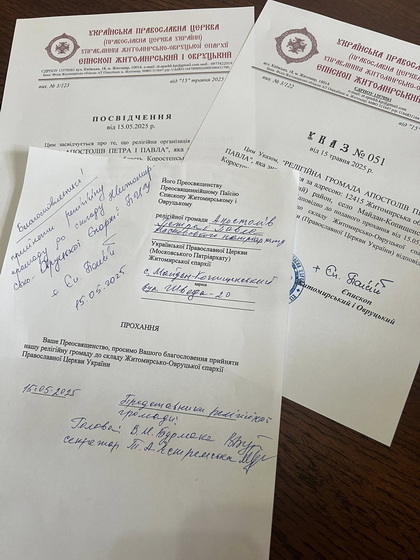 УКРАЇНСЬКА ПРАВОСЛАВНА ЦЕРКВА
(ПРАВОСЛАВНА ЦЕРКВА УКРАЇНИ)
УПРАВЛІННЯ ЖИТОМИРСЬКО-ОВРУЦЬКОЇ ЄПАРХІЇ
ЄПИСКОП ЖИТОМИРСЬКИЙ І ОВРУЦЬКИЙ
вих. № 3/125
від "15" травня 2025
ПОСВІДЧЕННЯ
від 15.05.2025 р.
Цим засвідчується про те, що релігійна організація
АПОСТОЛІВ ПЕТРА І ПАВЛА", яка
Коростенс
УКРАЇНСЬКА ПРАВОСЛАВНА ЦЕРКВА
(ПРАВОСЛАВНА ЦЕРКВА УКРАЇНИ)
УПРАВЛІННЯ ЖИТОМИРСЬКО-ОВРУЦЬКОЇ ЄПАРХІЇ
ЄПИСКОП ЖИТОМИРСЬКИЙ
вих. № 3/125
від "15" травня 2025
УКАЗ № 051
від 15 травня 2025 р.
Цим Указом, "РЕЛІГІЙНА ГРОМАДА АПОСТОЛІВ
ПАВЛА", яка
за адресою: 12415 Житомирська
район, село Майдан-Копищ
складу Житомирсько-Овруцької
(Православної Церкви України)
від 15.05
+ Єп. Паїсій
Єпископ
Житомирський і Овруцький
Благословляється!
прийняти релігійну
громаду до складу Житомир-
сько-Овруцької єпархії ПЦУ
+ Єп. Паїсій
15.05.2025
Його Преосвященству
Преосвященнішому Паїсію
Єпископу Житомирському і
Овруцькому
релігійної громади Апостолів
Петра і Павла
Московського патріархату
Української Православної Церкви
(Московського Патріархату)
Житомирської єпархії
с. Майдан-Копищенський
вул. Шведа-20
ПРОХАННЯ
Ваше Преосвященство, просимо Вашого благословення прийняти
нашу релігійну громаду до складу Житомирсько-Овруцької єпархії
Православної Церкви України
15.05.2025
Представники релігійної
громади:
Голова: В.М.
секретар Т.А.